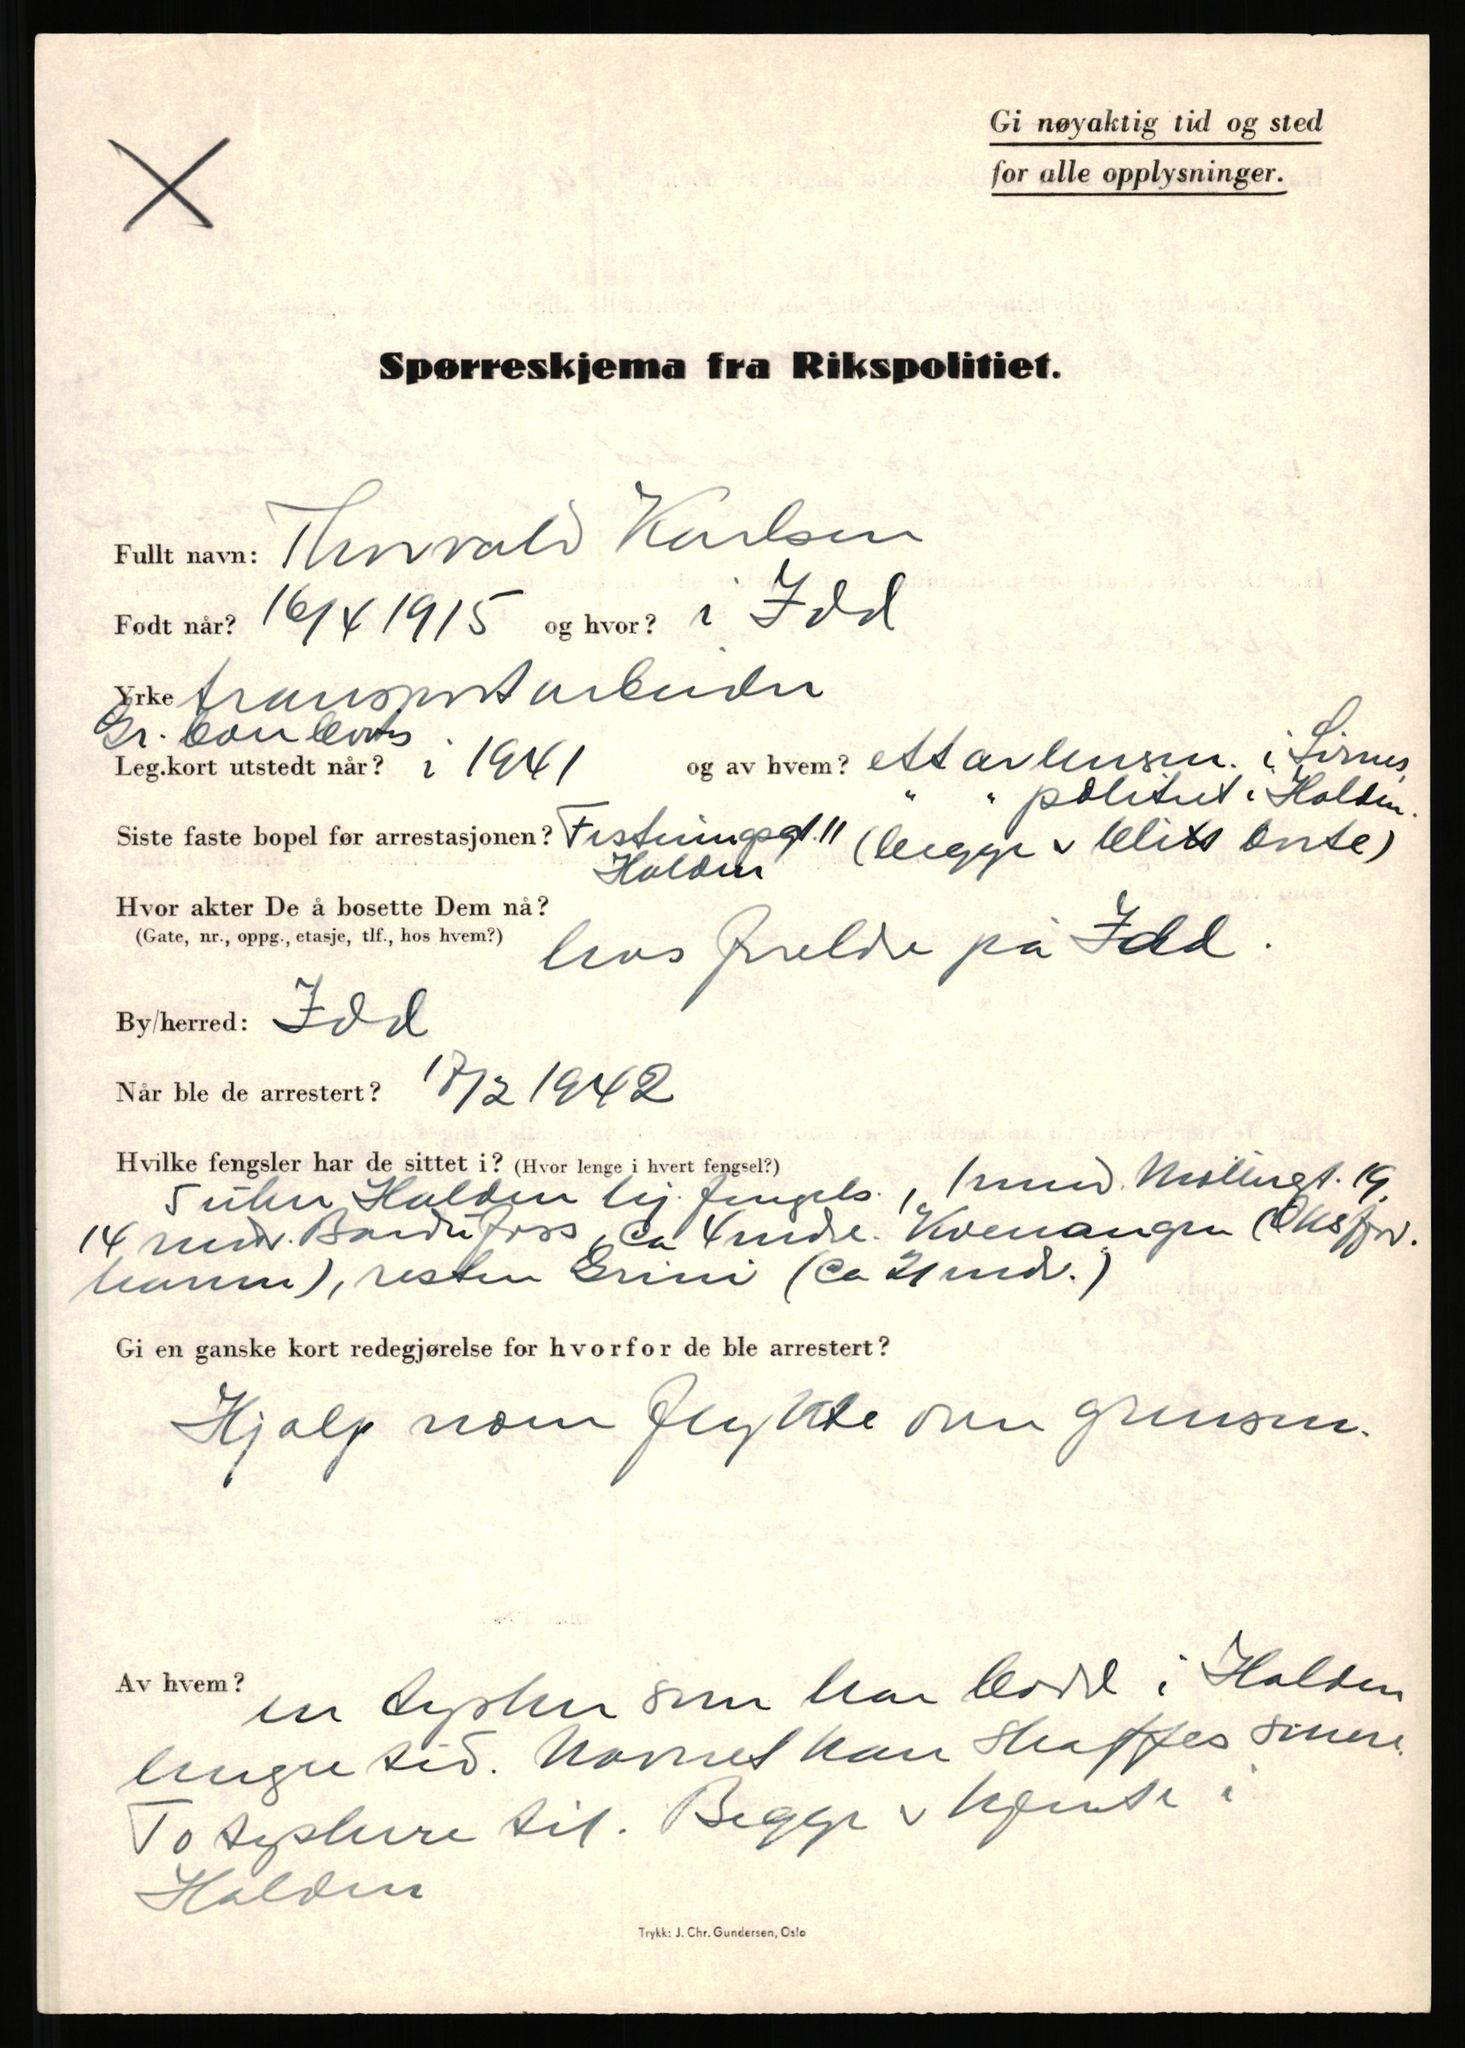 Gi nøyaktig tid og sted
for alle opplysninger.
Spørreskjema fra Rikspolitiet.
Fullt navn: Thorvald Karlsen
Født når? 16/4 1915 og hvor? i Idd
Yrke transportarbeider
Gr.
Leg.kort utstedt når? i 1941 og av hvem? i
" " politiet i Halden.
Siste faste bopel før arrestasjonen? Festningsgt. 11 (begge v blitt borte)
Halden
Hvor akter De å bosette Dem nå?
(Gate, nr., oppg., etasje, tlf., hos hvem?)
hos foreldre på Idd.
By/herred: Idd
Når ble de arrestert? 17/2 1942
Hvilke fengsler har de sittet i? (Hvor lenge i hvert fengsel?)
5 uker Halden hj. fengsls., 1 mnd. Møllergt. 19,
14 mndr. Bardufoss, ca 4 mdr. Kvenangen (Oksfjord.
havnen), resten Grini (ca 21 mdr.)
Gi en ganske kort redegjørelse for hvorfor de ble arrestert?
Hjalp noen flykte over grensen.
Av hvem? en tysker som har bodd i Halden
lengre tid. Navnet kan skaffes senere.
To tyskere til. Begge v kjente i
Halden
Trykk: J. Chr. Gundersen, Oslo